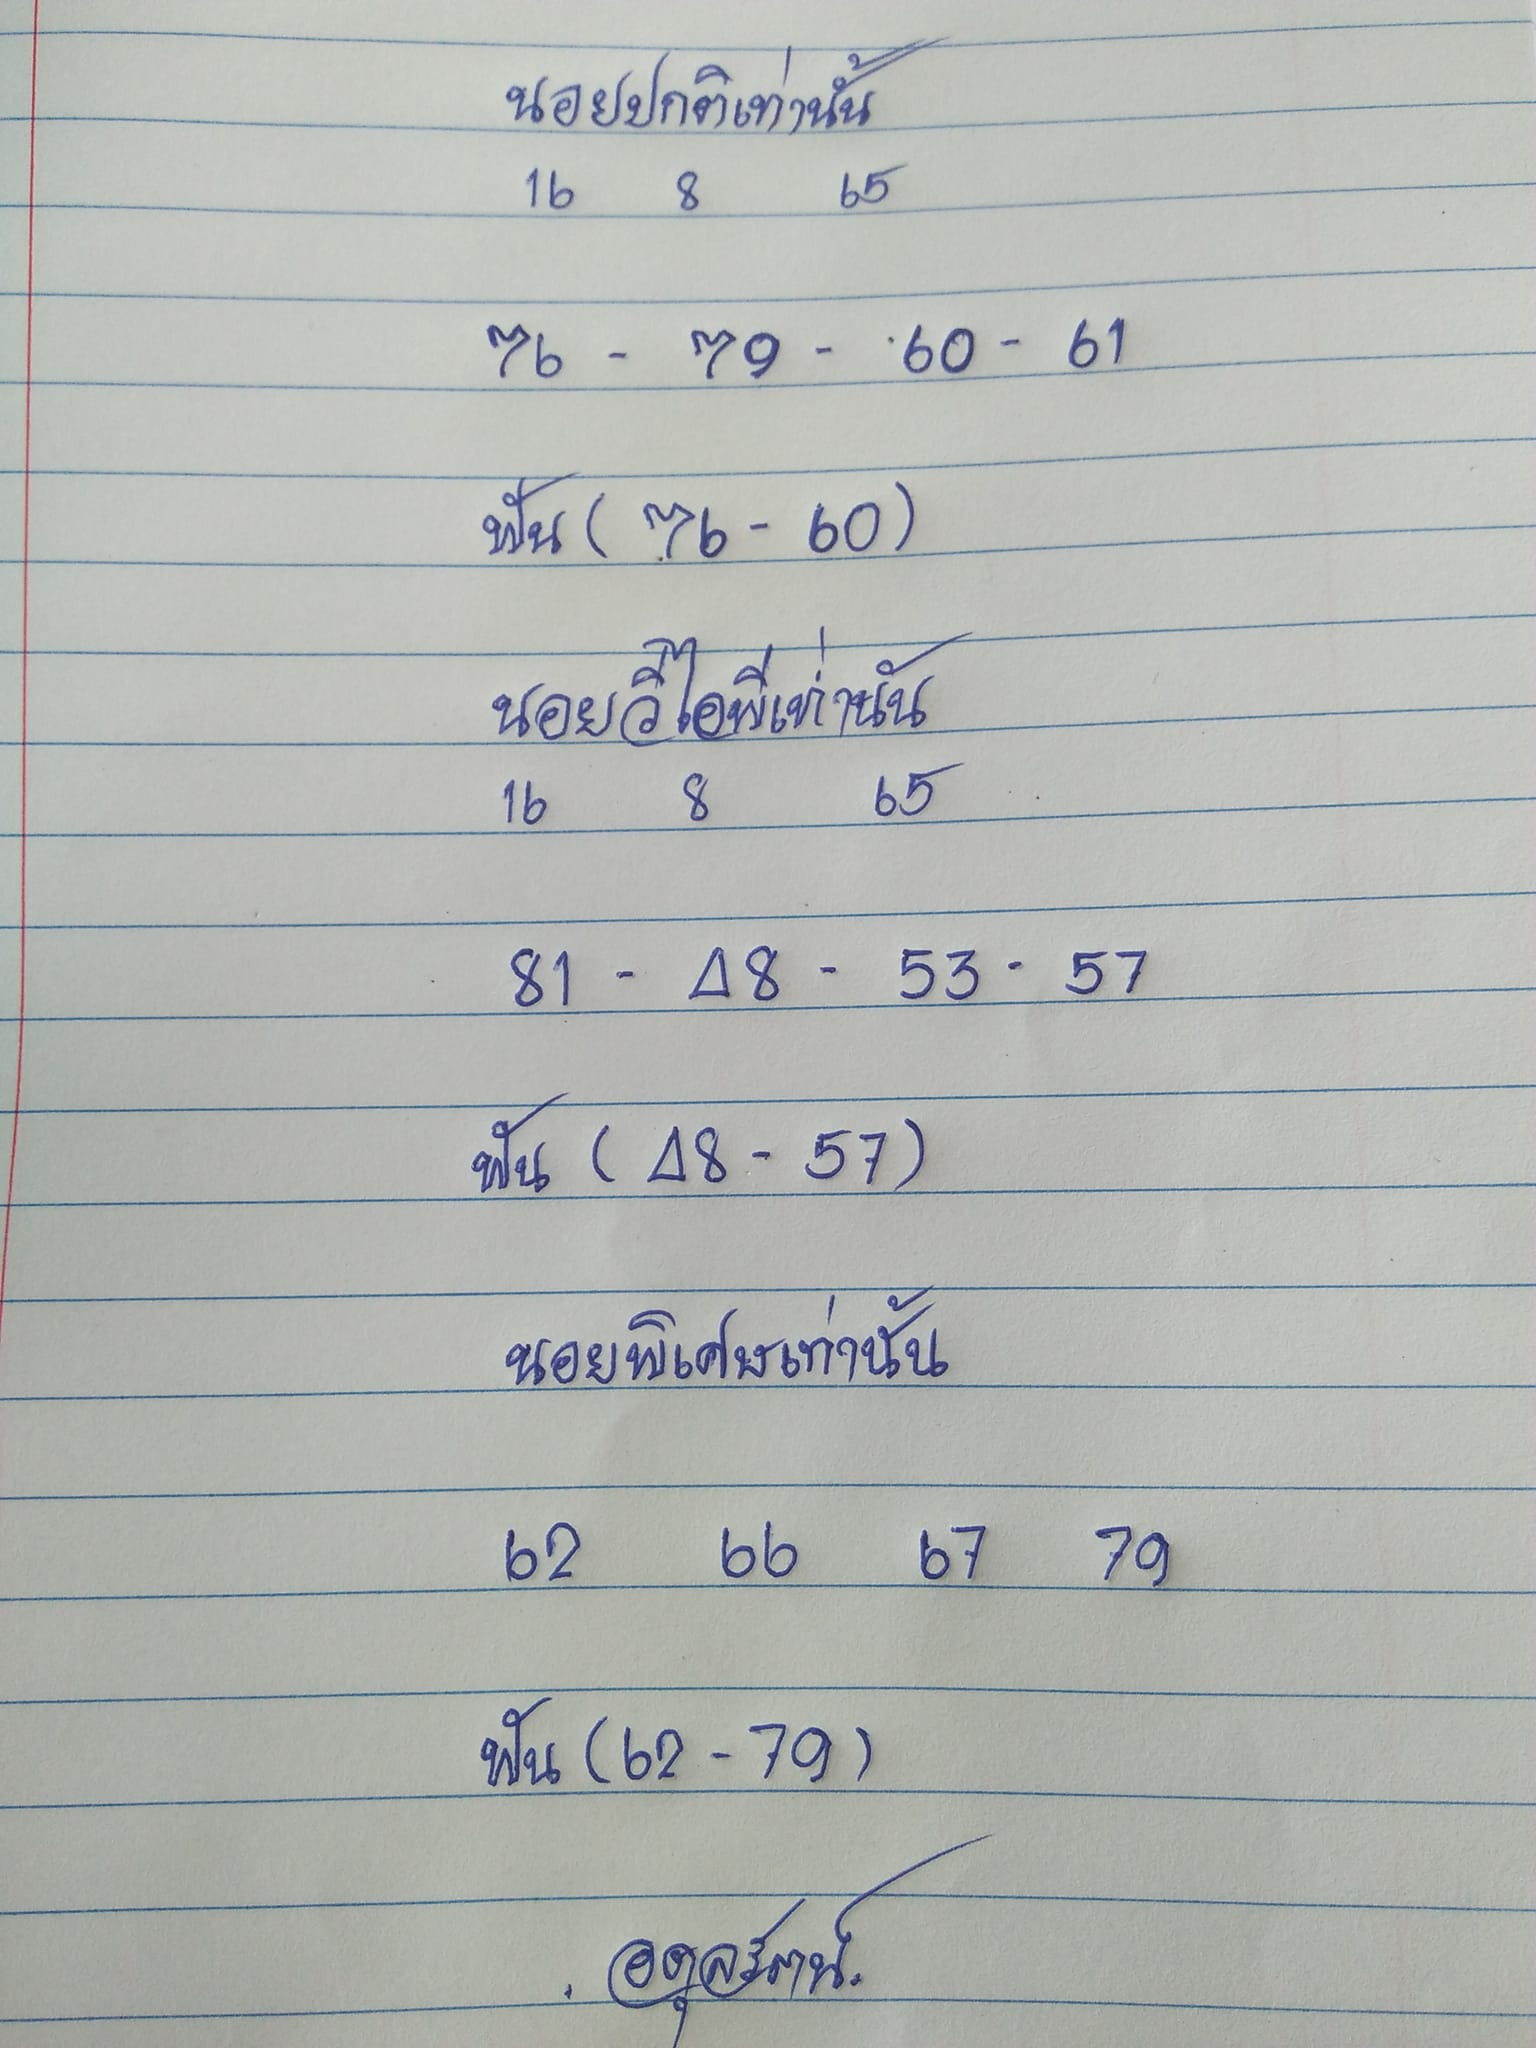 นอยปกติเท่านั้น
16 8 65
76 - 79 - 60 - 61
ฟัน ( 76 - 60 )
นอยวีไอพีเท่านั้น
16 8 65
81 - 48 - 53 - 57
ฟัน ( 48 - 57 )
นอยพิเศษเท่านั้น
62 66 67 79
ฟัน ( 62 - 79 )
อดุลรัตน์.